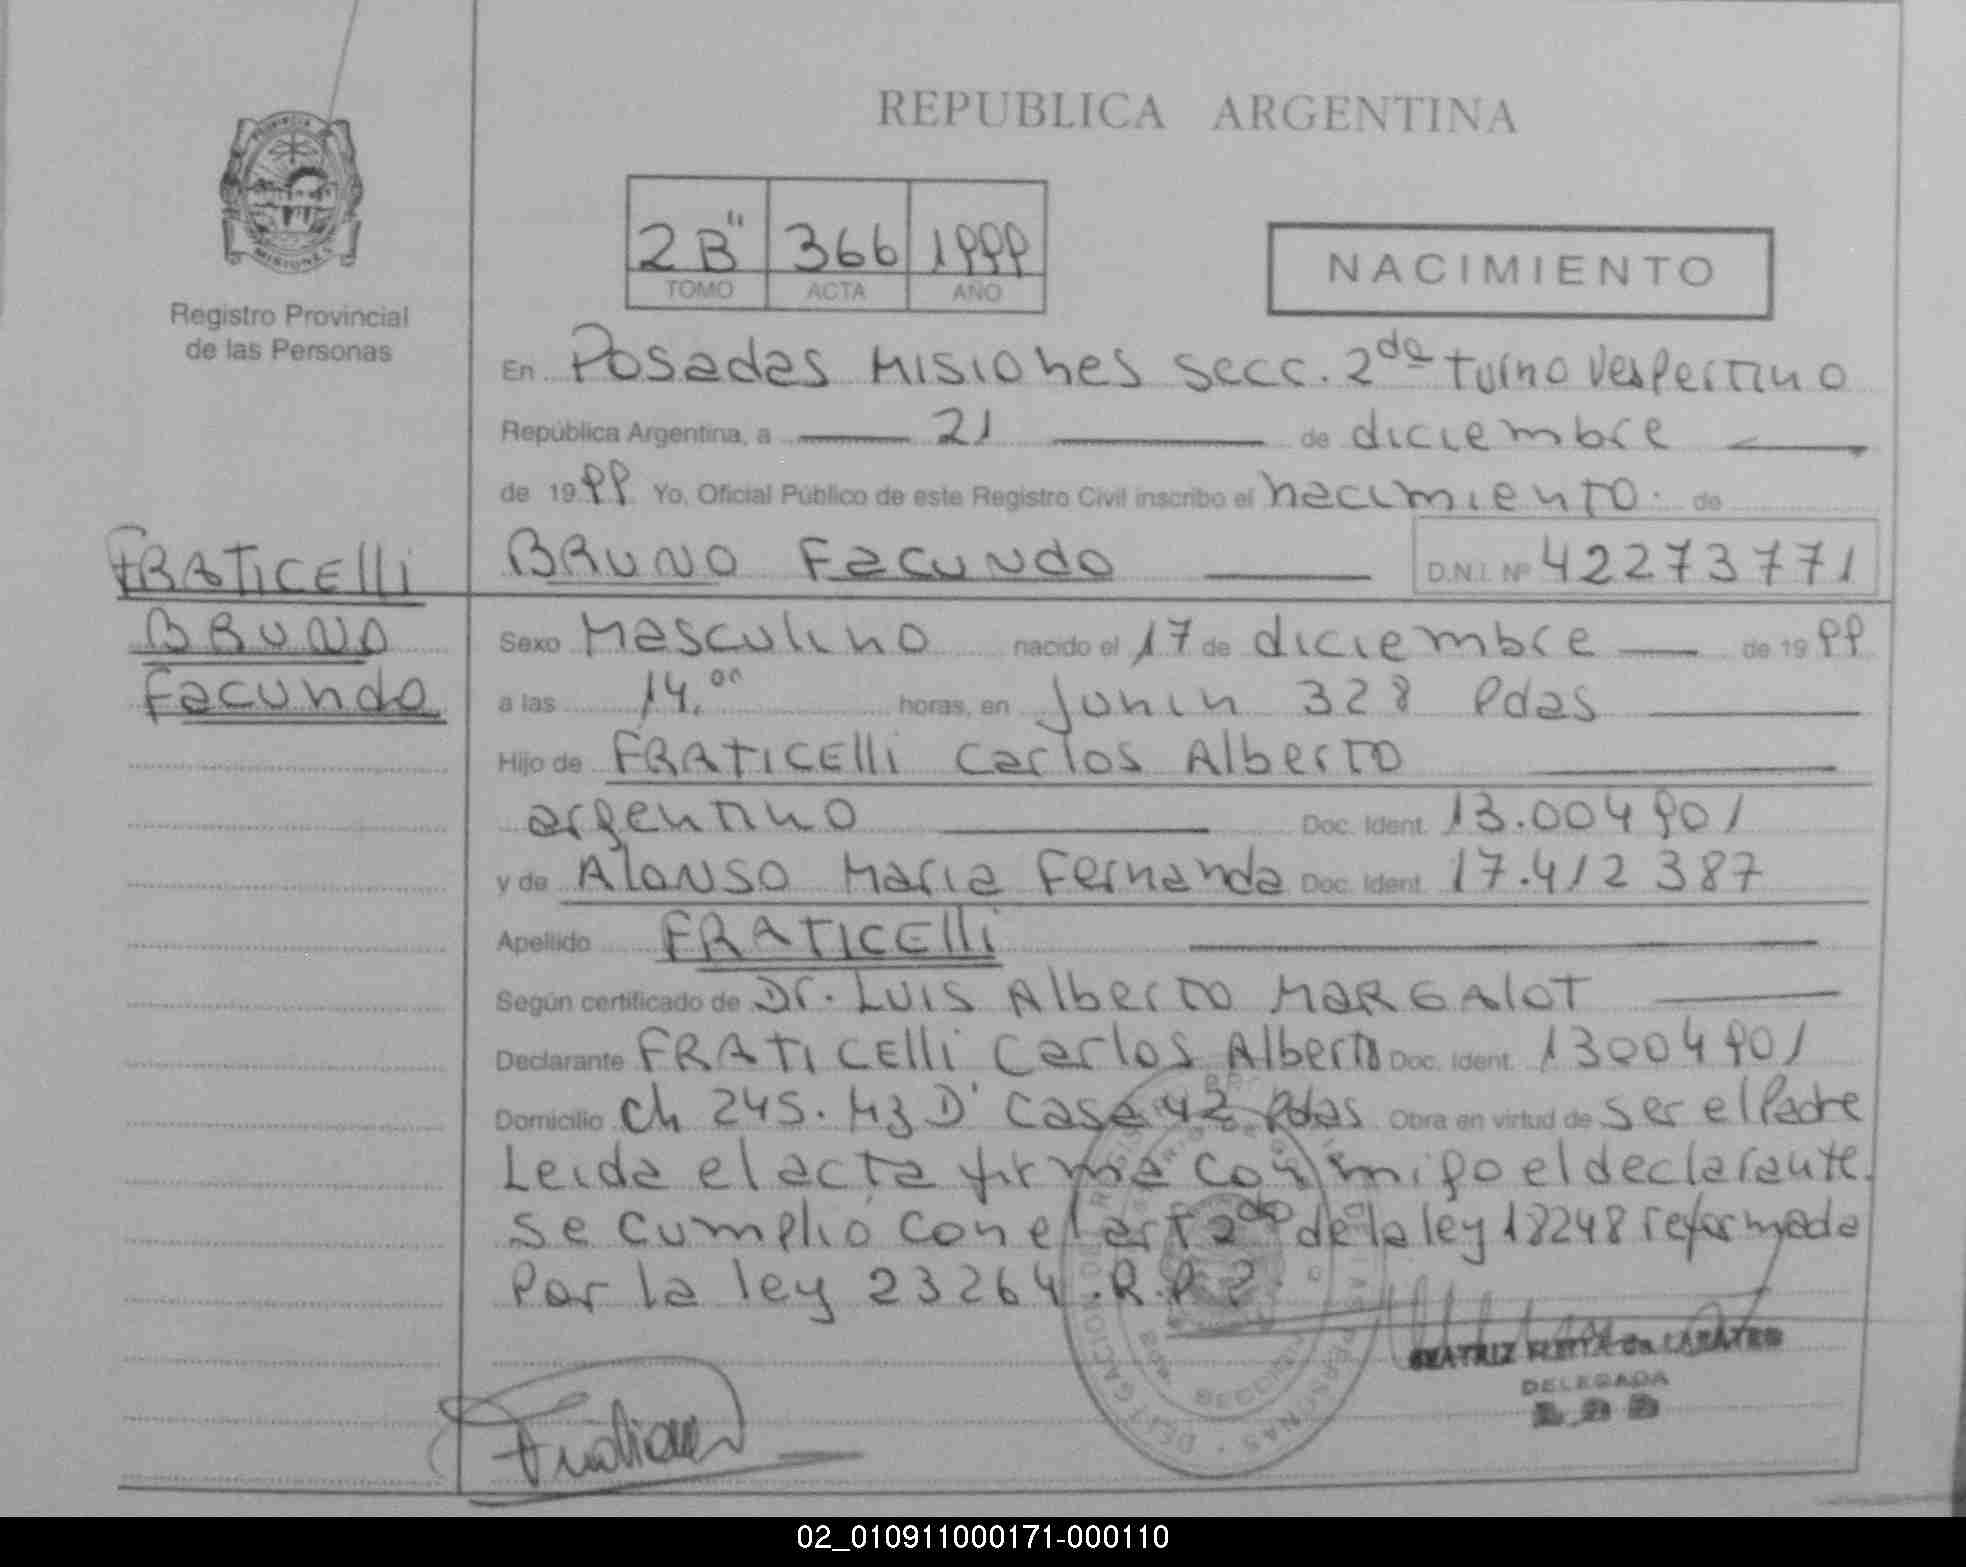 REPUBLICA ARGENTINA
PROVINCIA
MISIONES
Registro Provincial
de las Personas
2B" 366 1999
TOMO ACTA AÑO
NACIMIENTO
En Posadas Misiones secc. 2da turno vespertino
República Argentina, a 21 de diciembre
de 1999 Yo, Oficial Público de este Registro Civil inscribo el nacimiento. de
FRATICElli
BRUNO Facundo D.N.I. Nº 42273771
BRUNO
Facundo
Sexo Masculino nacido el 17 de diciembre de 1999
a las 14.00 horas, en Junin 328 Pdas
Hijo de FRATICElli Carlos Alberto
argentino Doc. Ident. 13.004901
y de AlONSO Maria Fernanda Doc. Ident. 17.412387
Apellido FRATICElli
Según certificado de Dr. LUIS Alberto MARGAlOT
Declarante FRATICElli Carlos Alberto Doc. Ident. 13004901
Domicilio Ch 245. Mz D' Casa 42 Pdas Obra en virtud de ser el Padre
Leida el acta firma conmigo el declarante.
se cumplió con el art 2do de la ley 18248 reformada
Por la ley 23264.R.P.
BEATRIZ de
DELEGADA
02_010911000171-000110